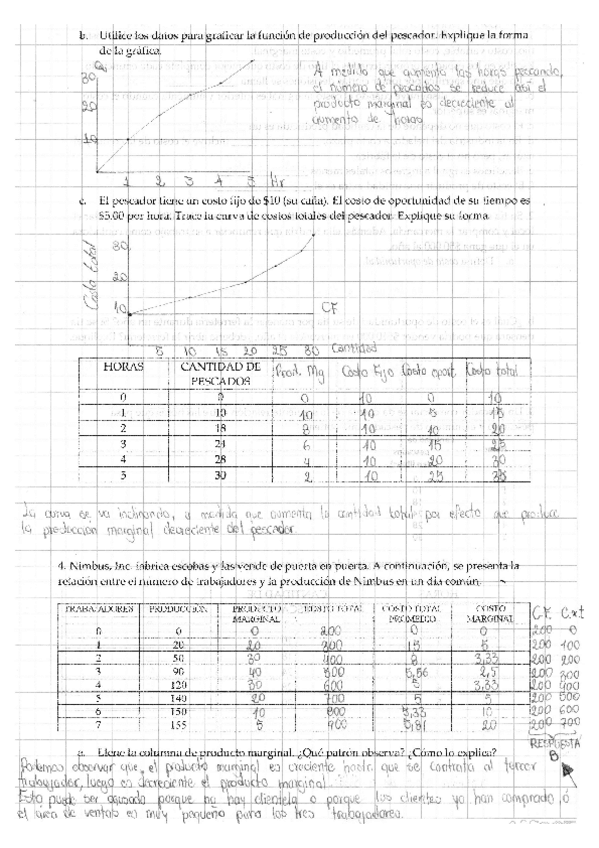 b. Utilice los datos para graficar la función de producción del pescador. Explique la forma
de la gráfica.
Q
30
20
10
1 2 3 4 5 Hr
A medida que aumenta las horas pescando,
el número de pescados se reduce así el
producto marginal es decreciente al
aumento de horas
c. El pescador tiene un costo fijo de $10 (su caña). El costo de oportunidad de su tiempo es
$5.00 por hora. Trace la curva de costos totales del pescador. Explique su forma.
Costo total
30
20
10
CF
5 10 15 20 25 30 Cantidad
HORAS CANTIDAD DE PESCADOS Prod. Mg Costo Fijo Costo oport. Costo total
0 0 0 10 0 10
1 10 10 10 5 15
2 18 8 10 10 20
3 24 6 10 15 25
4 28 4 10 20 30
5 30 2 10 25 35
La curva se va inclinando, a medida que aumenta la cantidad total por efecto que produce
la producción marginal decreciente del pescador.
4. Nimbus, Inc. fabrica escobas y las vende de puerta en puerta. A continuación, se presenta la
relación entre el número de trabajadores y la producción de Nimbus en un día común.
TRABAJADORES PRODUCCIÓN PRODUCTO MARGINAL COSTO TOTAL COSTO TOTAL PROMEDIO COSTO MARGINAL CF. C.xt
0 0 0 200 0 0 200 0
1 20 20 300 15 5 200 100
2 50 30 400 8 3,33 200 200
3 90 40 500 5,56 2,5 200 300
4 120 30 600 5 3,33 200 400
5 140 20 700 5 5 200 500
6 150 10 800 5,33 10 200 600
7 155 5 900 5,81 20 200 700
RESPUESTA
B
a. Llene la columna de producto marginal. ¿Qué patrón observa? ¿Cómo lo explica?
Podemos observar que, el producto marginal es creciente hasta que se contrata al tercer
trabajador, luego es decreciente el producto marginal.
Esto puede ser causado porque no hay clientela o porque los clientes ya han comprado, o
el área de ventas es muy pequeño para los tres trabajadores.